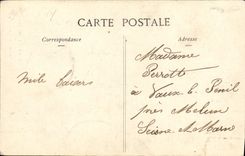 CARTE POSTALE
Correspondance
Adresse
Madame
Perrotte
à Vaux-le-Penil
près Melun
Seine et Marne
Mile baisers